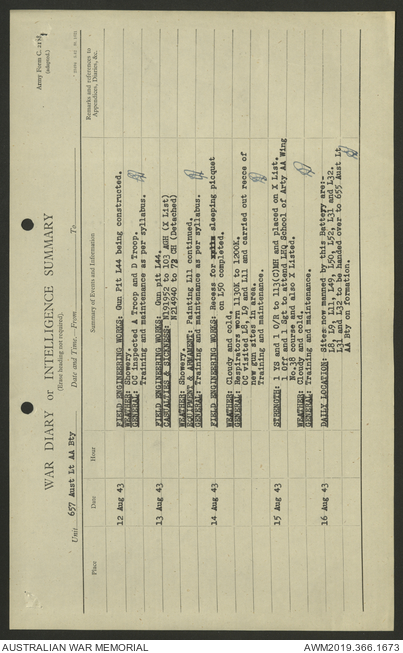 Army Form C. 2118
(adapted.)
WAR DIARY or INTELLIGENCE SUMMARY
(Erase heading not required).
Unit 657 Aust Lt AA Bty
Date and Time, From
To
Place
Date
Hour
Summary of Events and Information
Remarks and references to
Appendices, Diaries, &c.
12 Aug 43
FIELD ENGINEERING WORKS: Gun Pit L44 being constructed.
WEATHER: Showery.
GENERAL: OC inspected A Troop and D Troop.
Training and maintenance as per syllabus.
13 Aug 43
FIELD ENGINEERING WORKS: Gun pit L44.
CASUALTIES & SICKNESS: to 103 AGH (X List)
N214940 to 72 CH (Detached)
WEATHER: Showery.
EQUIPMENT & ARMAMENT: Painting L11 continued.
GENERAL: Training and maintenance as per syllabus.
14 Aug 43
FIELD ENGINEERING WORKS: Recess for sleeping picquet
on L50 completed.
WEATHER: Cloudy and cold.
GENERAL: Respirators worn 1130K to 1200K.
OC visited L8, L9 and L11 and carried out recce of
new gun sites in area.
Training and maintenance.
15 Aug 43
STRENGTH: 1 YS and 1 O/R to 113(C)MH and placed on X List.
1 Off and 1 Sgt to attend LHQ School of Arty AA Wing
No.38 course and also X Listed.
WEATHER: Cloudy and cold.
GENERAL: Training and maintenance.
16 Aug 43
DAILY LOCATION: Sites now manned by this Battery are:-
L8, L9, L11, L49, L50, L52, L31 and L32.
L31 and L32 to be handed over to 655 Aust Lt
AA Bty on formation.
AUSTRALIAN WAR MEMORIAL
AWM2019.366.1673